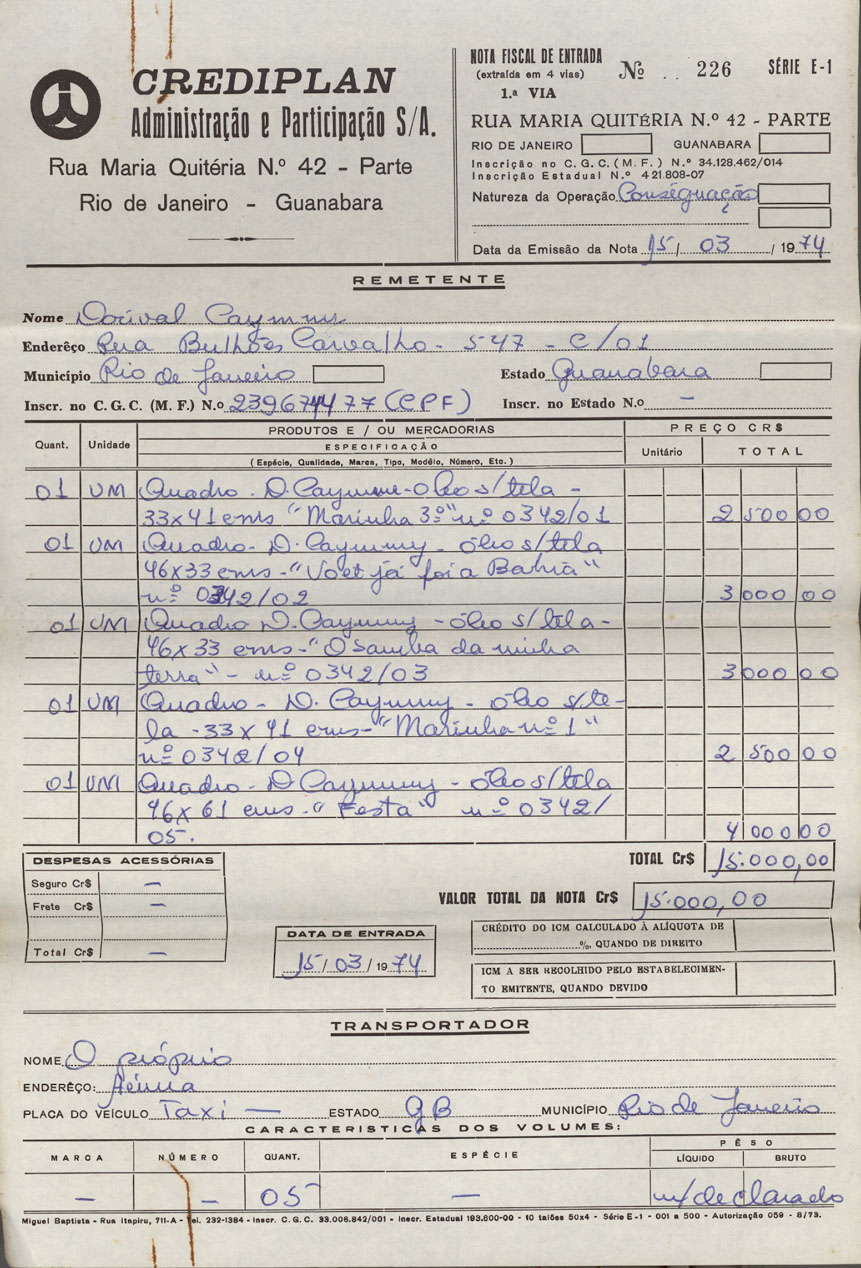 CREDIPLAN
Administração e Participação S/A.
Rua Maria Quitéria N.º 42 - Parte
Rio de Janeiro - Guanabara
NOTA FISCAL DE ENTRADA
(extraída em 4 vias)
1.ª VIA
Nº 226 SÉRIE E-1
RUA MARIA QUITÉRIA N.º 42 - PARTE
RIO DE JANEIRO GUANABARA
Inscrição no C.G.C.(M.F.) N.º 34.128.462/014
Inscrição Estadual N.º 421.808-07
Natureza da Operação Consignação
Data da Emissão da Nota 15/ 03 / 1974
REMETENTE
Nome Dorival Caymmi
Enderêço Rua Bulhões Carvalho - 547 - C/01
Município Rio de Janeiro Estado Guanabara
Inscr. no C.G.C. (M.F.) N.º (CPF) Inscr. no Estado N.o -
Quant. Unidade PRODUTOS E / OU MERCADORIAS PREÇO CR$
ESPECIFICAÇÃO
(Espécie, Qualidade, Marca, Tipo, Modêlo, Número, Etc.) Unitário TOTAL
01 UM Quadro - D. Caymmi - óleo s/tela -
33x41 cms "Marinha 3º" nº 0342/01 2 500 00
01 UM Quadro - D. Caymmy - óleo s/tela
46x33 cms - "Você já foi a Bahia"
nº 0342/02 3 000 00
01 UM Quadro D. Caymmy - óleo s/tela -
46x33 cms - "O samba da minha
terra" - nº 0342/03 3 000 00
01 UM Quadro - D. Caymmy - óleo s/te-
la - 33x41 cms - "Marinha nº 1"
nº 0342/04 2 500 00
01 UM Quadro - D. Caymmy - óleo s/tela
46x61 cms - "Festa" nº 0342/
05. 4 000 00
TOTAL Cr$ 15.000,00
VALOR TOTAL DA NOTA Cr$ 15.000,00
DESPESAS ACESSÓRIAS
Seguro Cr$ -
Frete Cr$ -
Total Cr$ -
DATA DE ENTRADA
15/ 03 / 1974
CRÉDITO DO ICM CALCULADO À ALÍQUOTA DE
%, QUANDO DE DIREITO
ICM A SER RECOLHIDO PELO ESTABELECIMEN-
TO EMITENTE, QUANDO DEVIDO
TRANSPORTADOR
NOME O próprio
ENDERÊÇO: Acima
PLACA DO VEÍCULO Taxi - ESTADO GB MUNICÍPIO Rio de Janeiro
CARACTERISTICAS DOS VOLUMES:
MARCA NÚMERO QUANT. ESPÉCIE PÊSO
LÍQUIDO BRUTO
- - 05 - n/declarado
Miguel Baptista - Rua Itapiru, 711-A - Tel. 232-1384 - Inscr. C.G.C. 33.006.842/001 - Inscr. Estadual 193.600-00 - 10 talões 50x4 - Série E-1 - 001 a 500 - Autorização 059 - 8/73.